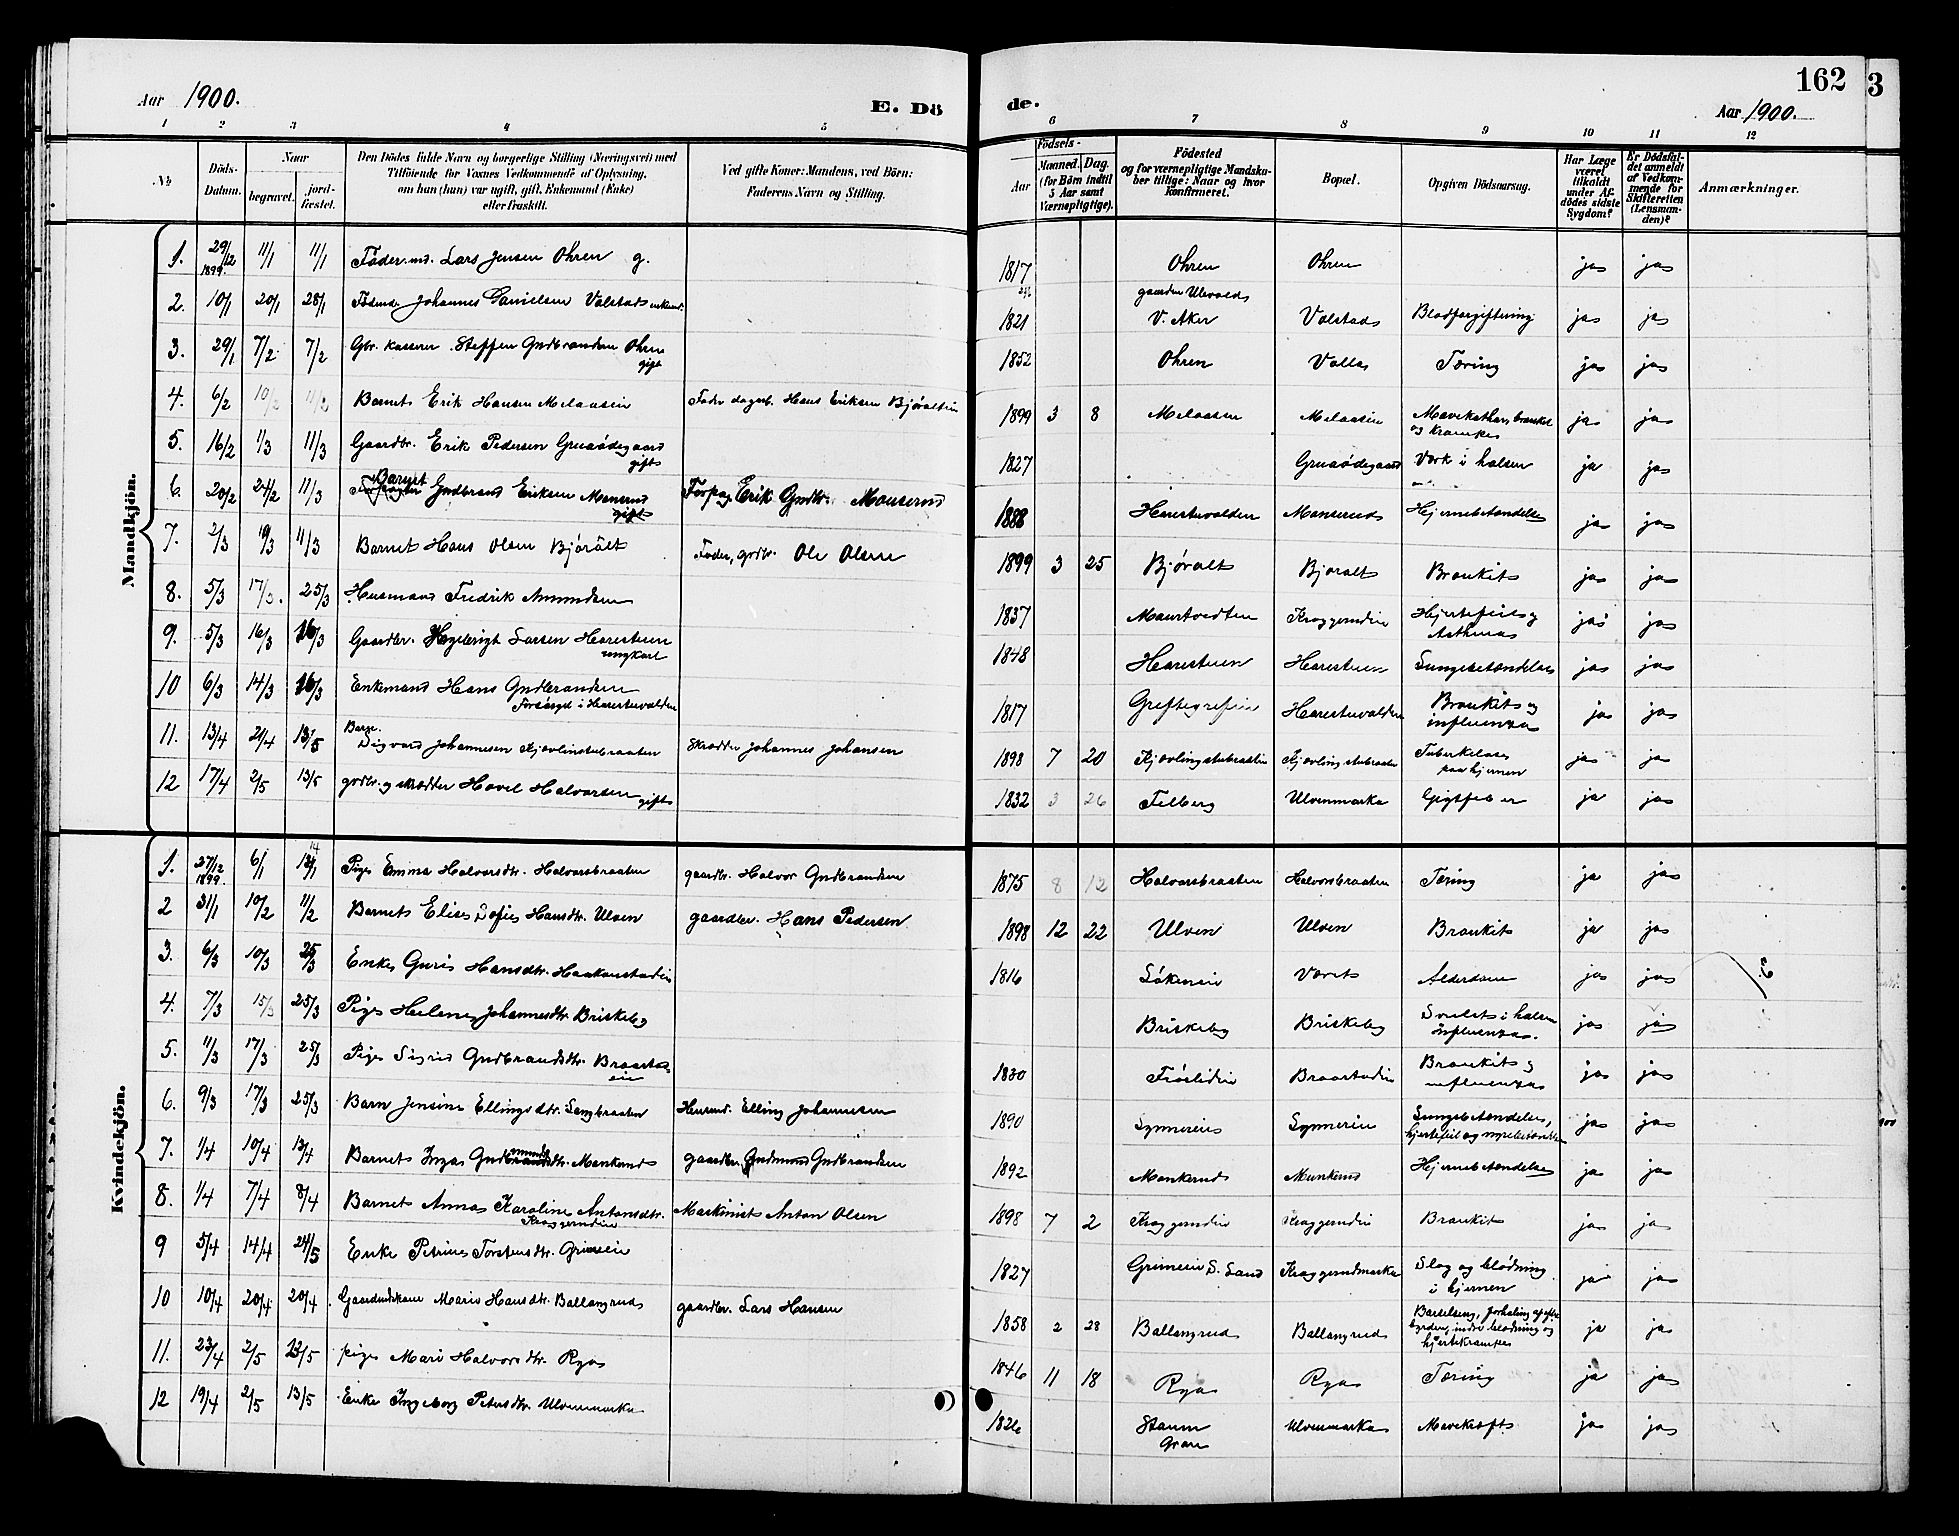 Aar 1900.
E. Dö
de.
162
3
Aar 1900.
1 2 3 4 5 6 7 8 9 10 11 12
№
Döds-
Datum.
Naar
begravet.
jord-
fæstet.
Den Dödes fulde Navn og borgerlige Stilling (Næringsvei) med
Tilföiende for Voxnes Vedkommende af Oplysning,
om han (hun) var ugift, gift, Enkemand (Enke)
eller fraskilt.
Ved gifte Koner: Mandens, ved Börn:
Faderens Navn og Stilling.
Födsels-
Aar
Maaned.
Dag.
(for Börn indtil
5 Aar samt
Værnepligtige).
Födested
og for værnepligtige Mandska-
ber tillige: Naar og hvor
konfirmeret.
Bopæl.
Opgiven Dödsaarsag.
Har Læge
været
tilkaldt
under Af-
dödes sidste
Sygdom?
Er Dödsfal-
det anmeldt
af Vedkom-
mende for
Skifteretten
(Lensman-
den)?
Anmærkninger.
Mandkjön.
1. 29/12 1899. 11/1 11/1 Føder.md. Lars Jensen Ohren g. 1817 Ohren Ohren ja ja
2. 10/1 20/1 28/1 Johannes Danielsen Valstad enkemd. 1821 gaarden Ulevold V. Aker Valstad Blodforgiftning ja ja
3. 29/1 7/2 7/2 Gbr. kasserer Steffen Gudbrandsen Ohren gift 1852 Ohren Valla Tæring ja ja
4. 6/2 10/2 11/2 Barnet Erik Hansen Melaasen Fader dagarb. Hans Eriksen Bjøralteie 1899 3 8 Melaasen Melaasen Mavekathar, bronkit og krampe ja ja
5. 16/2 1/3 11/3 Gaardbr. Erik Pedersen Gruaødegaard gift 1827 Gruaødegaard Værk i halsen ja ja
6. 20/2 24/2 11/3 Barnet Gudbrand Eriksen Monserud gift Forpag. Erik Gudbr. Monserud 1888 Harestuvalden Monserud Hjernebetændelse ja ja
7. 2/3 10/3 11/3 Barnet Hans Olsen Bjøralt Fader, grdbr. Ole Olsen 1899 3 25 Bjøralt Bjøralt Bronkit ja ja
8. 5/3 17/3. 25/3 Husmand Fredrik Amundsen 1837 Maurtvedten Kraggerudeie Hjertefeil og Asthma ja ja
9. 5/3 16/3 16/3 Gaardbr. Engebrigt Larsen Harestuen ungkarl 1848 Harestuen Harestuen Lungebetændelse ja ja
10 6/3 14/3 16/3 Enkemand Hans Gudbrandsen forsørget i Harestuvalden 1817 Greftegrefeie Harestuvalden Bronkit og influenza ja ja
11. 13/4 21/4 13/5 Barn. Sigvard Johannesen Kjøvlingstubraaten Skrædder Johannes Johansen 1898 7 20 Kjøvlingstubraaten Kjøvlingstubraaten Tuberkelose paa hjernen ja ja
12 17/4 2/5 13/5 grdbr. og skrædder Hovel Halvorsen gift 1832 3 26 Felberg Ulvenmarka Gigtfeber ja ja
Kvindekjön.
1. 27/12 1899. 6/1 14/1 Pige Emma Halvorsdtr. Halvorsbraaten gaardbr. Halvor Gudbrandsen 1875 8 12 Halvorsbraaten Halvorsbraaten Tæring ja ja
2 31/1 10/2 11/2 Barnet Elise Sofie Hansdtr. Ulven gaardbr. Hans Pedersen 1898 12 22 Ulven Ulven Bronkit ja ja
3. 6/3 10/3 25/3 Enke Guri Hansdtr. Haakenstadeie 1816 Søkeneie Værets Alderdom ja ja
4. 7/3 15/3 25/3 Pige Helene Johannesdtr. Briskeby Briskeby Briskeby Svulst i halsen influenza. ja ja
5. 11/3 17/3 25/3 Pige Sigrid Gudbrandsdtr. Braastad eie 1830 Frøslideie Braastadeie Bronkit og influenza ja ja
6. 9/3 17/3 25/3 Barn Jensine Ellingsdtr. Langbraaten Husmd. Elling Johannesen 1890 Synnereie Synnereie Lungebetændelse, hjertefeil og nyrebetændelse ja ja
7. 1/4 10/4 13/4 Barnet Inga Gudmundsdtr. Monkerud gaardbr. Gudmund Gudbrandsen 1892 Monkerud Munkerud Hjernebetændelse ja ja
8. 1/4 7/4 8/4 Barnet Anna Karoline Antonsdtr. Kraggerudeie Maskinist Anton Olsen 1898 7 2 Kraggerudeie Kraggerudeie Bronkit ja ja
9 5/4 14/4 24/5 Enke Petrine Torstensdtr. Grimeie 1827 Grimeie S. Land Kraggerudmarka Slag og blødning i hjernen ja ja
10 10/4 20/4 20/4 Gaardmdskone Marie Hansdtr. Ballangrud gaardbr. Lars Hansen 1858 2 28 Ballangrud Ballangrud Barselseng, forhaling af efterbyrden, indre blødning og hjertekrampe ja ja
11. 23/4 2/5 13/5 pige Mari Halvorsdtr. Rya 1846 11 18 Rya Rya Tæring ja ja
12 19/4 2/5 13/5 Enke Ingeborg Petersdtr. Ulvenmarka 1826 Staum Gran Ulvenmarka Mavekræft ja ja